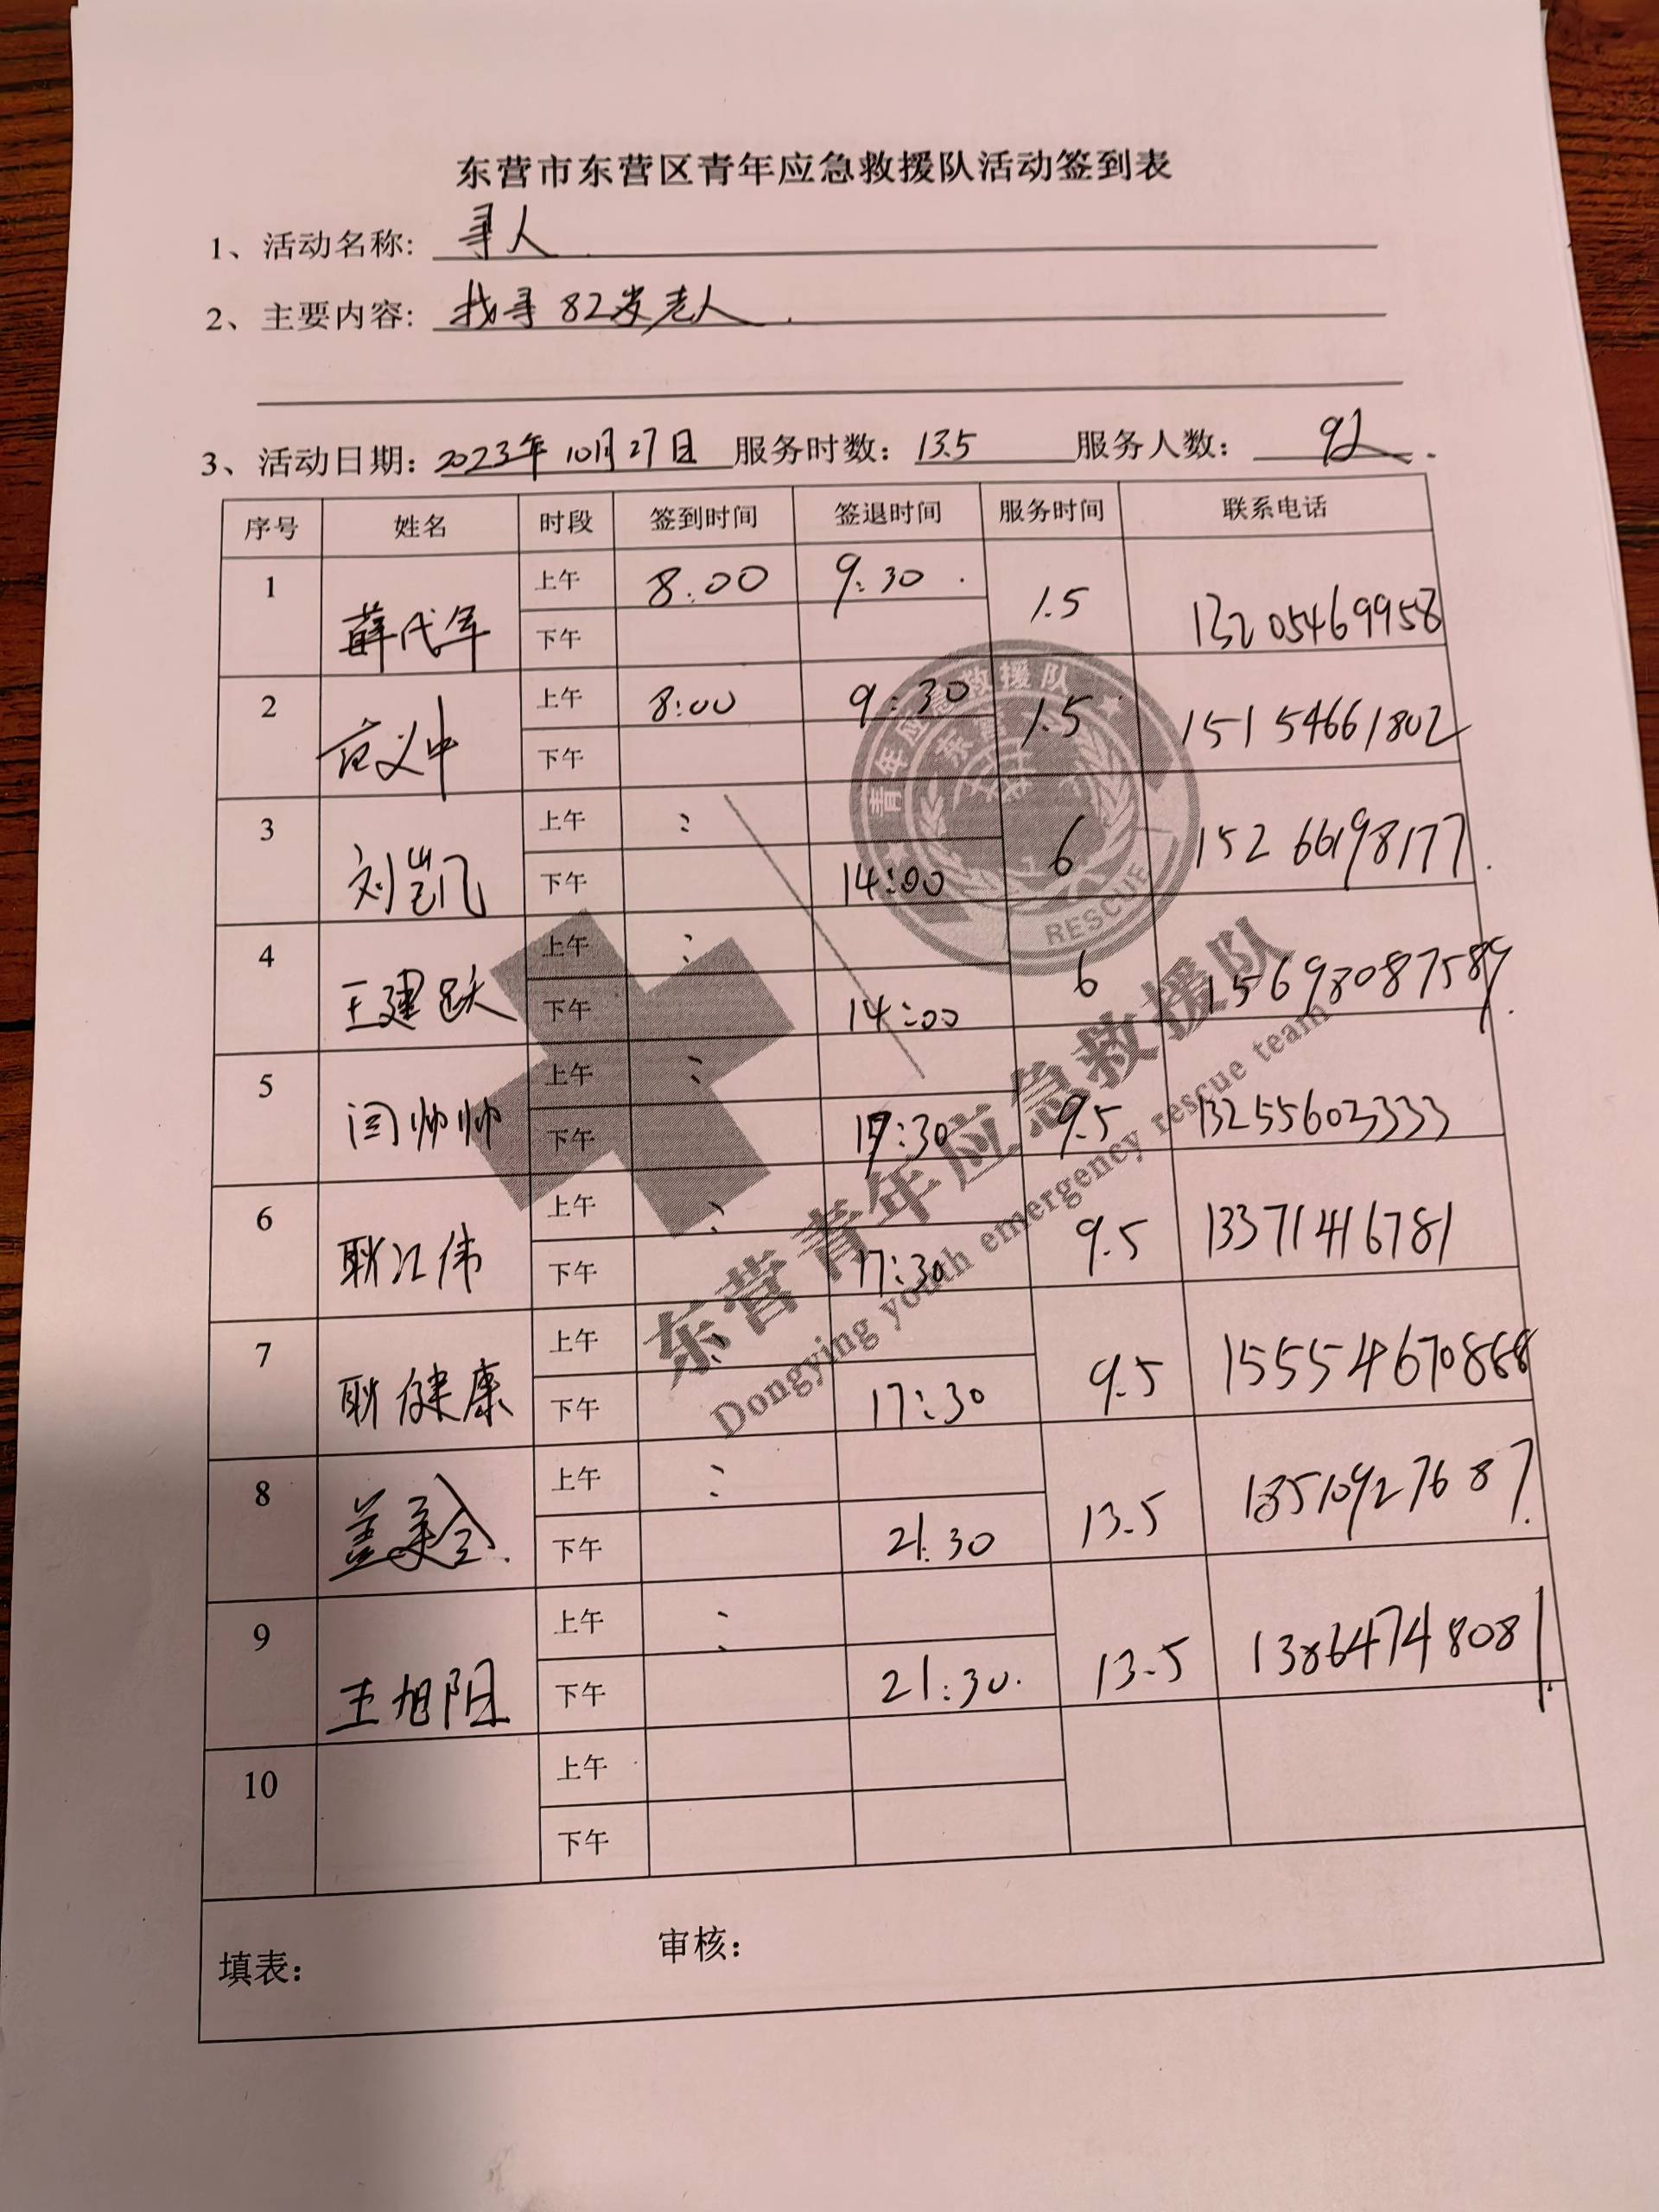 东营市东营区青年应急救援队活动签到表
1、活动名称: 寻人
2、主要内容: 找寻82岁老人.
3、活动日期: 2023年10月27日 服务时数: 13.5 服务人数: 9人.
序号 姓名 时段 签到时间 签退时间 服务时间 联系电话
1 薛代军 上午 8:00 9:30 1.5 13205469958
下午
2 上午 8:00 9:30 1.5 15154661802
下午
3 刘凯 上午 : 6 15266198177.
下午 14:00
4 王建跃 上午 : 6
下午 14:00
5 闫帅帅 上午 : 9.5 13255603333
下午 17:30
6 耿江伟 上午 : 9.5 13371416781
下午 17:30
7 耿健康 上午 : 9.5
下午 17:30
8 上午 : 13.5
下午 21:30
9 王旭阳 上午 : 13.5 13864748081.
下午 21:30.
10 上午
下午
填表: 审核:
青年应急救援队
RESCUE
东营青年应急救援队
Dongying youth emergency rescue team